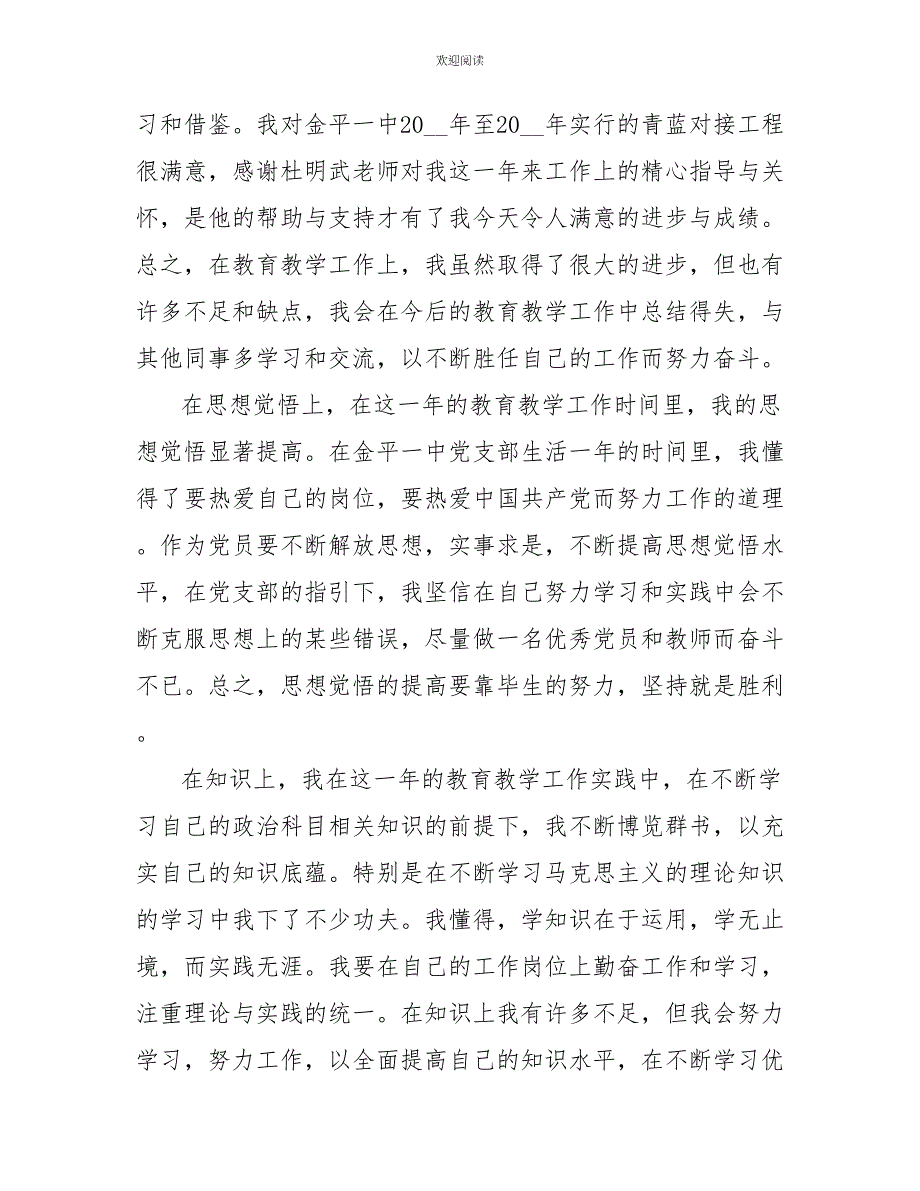 欢迎阅读
习和借鉴。我对金平一中20__年至20__年实行的青蓝对接工程
很满意，感谢杜明武老师对我这一年来工作上的精心指导与关
怀，是他的帮助与支持才有了我今天令人满意的进步与成绩。
总之，在教育教学工作上，我虽然取得了很大的进步，但也有
许多不足和缺点，我会在今后的教育教学工作中总结得失，与
其他同事多学习和交流，以不断胜任自己的工作而努力奋斗。
在思想觉悟上，在这一年的教育教学工作时间里，我的思
想觉悟显著提高。在金平一中党支部生活一年的时间里，我懂
得了要热爱自己的岗位，要热爱中国共产党而努力工作的道理
。作为党员要不断解放思想，实事求是，不断提高思想觉悟水
平，在党支部的指引下，我坚信在自己努力学习和实践中会不
断克服思想上的某些错误，尽量做一名优秀党员和教师而奋斗
不已。总之，思想觉悟的提高要靠毕生的努力，坚持就是胜利
。
在知识上，我在这一年的教育教学工作实践中，在不断学
习自己的政治科目相关知识的前提下，我不断博览群书，以充
实自己的知识底蕴。特别是在不断学习马克思主义的理论知识
的学习中我下了不少功夫。我懂得，学知识在于运用，学无止
境，而实践无涯。我要在自己的工作岗位上勤奋工作和学习，
注重理论与实践的统一。在知识上我有许多不足，但我会努力
学习，努力工作，以全面提高自己的知识水平，在不断学习优